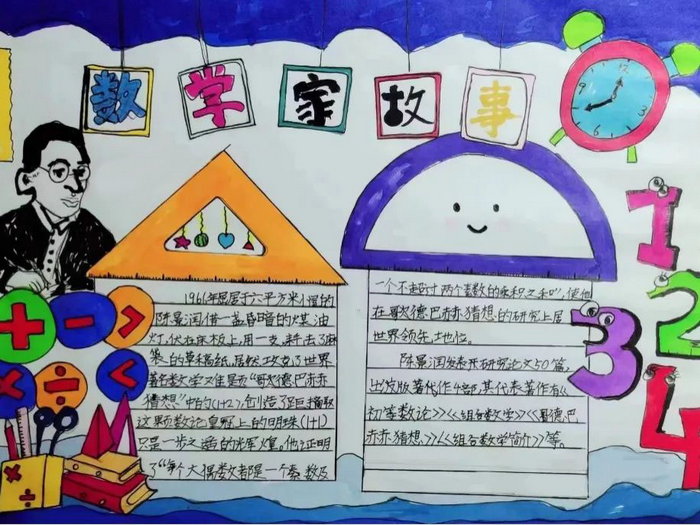 数学家故事
1966年居于六平方米小屋的
陈景润借一盏昏暗的煤油
灯,伏在床板上,用一支笔,耗去了麻
袋的草稿纸,居然攻克了世界
著名数学难题"哥德巴赫
猜想"中的(1+2),创造了距摘取
这颗数论皇冠上的明珠(1+1)
只是一步之遥的光辉煌。他证明
了"每个大偶数都是一个素数及
一个不超过两个素数的乘积之和",使他
在哥德巴赫猜想的研究上居
世界领先地位。
陈景润发表研究论文50篇,
出版著代作4部,其代表著作有《
初等数论》《组合数学》《哥德巴
赫猜想》《组合数学简介》等。
1
2
3
4
+ - >
× ÷ <